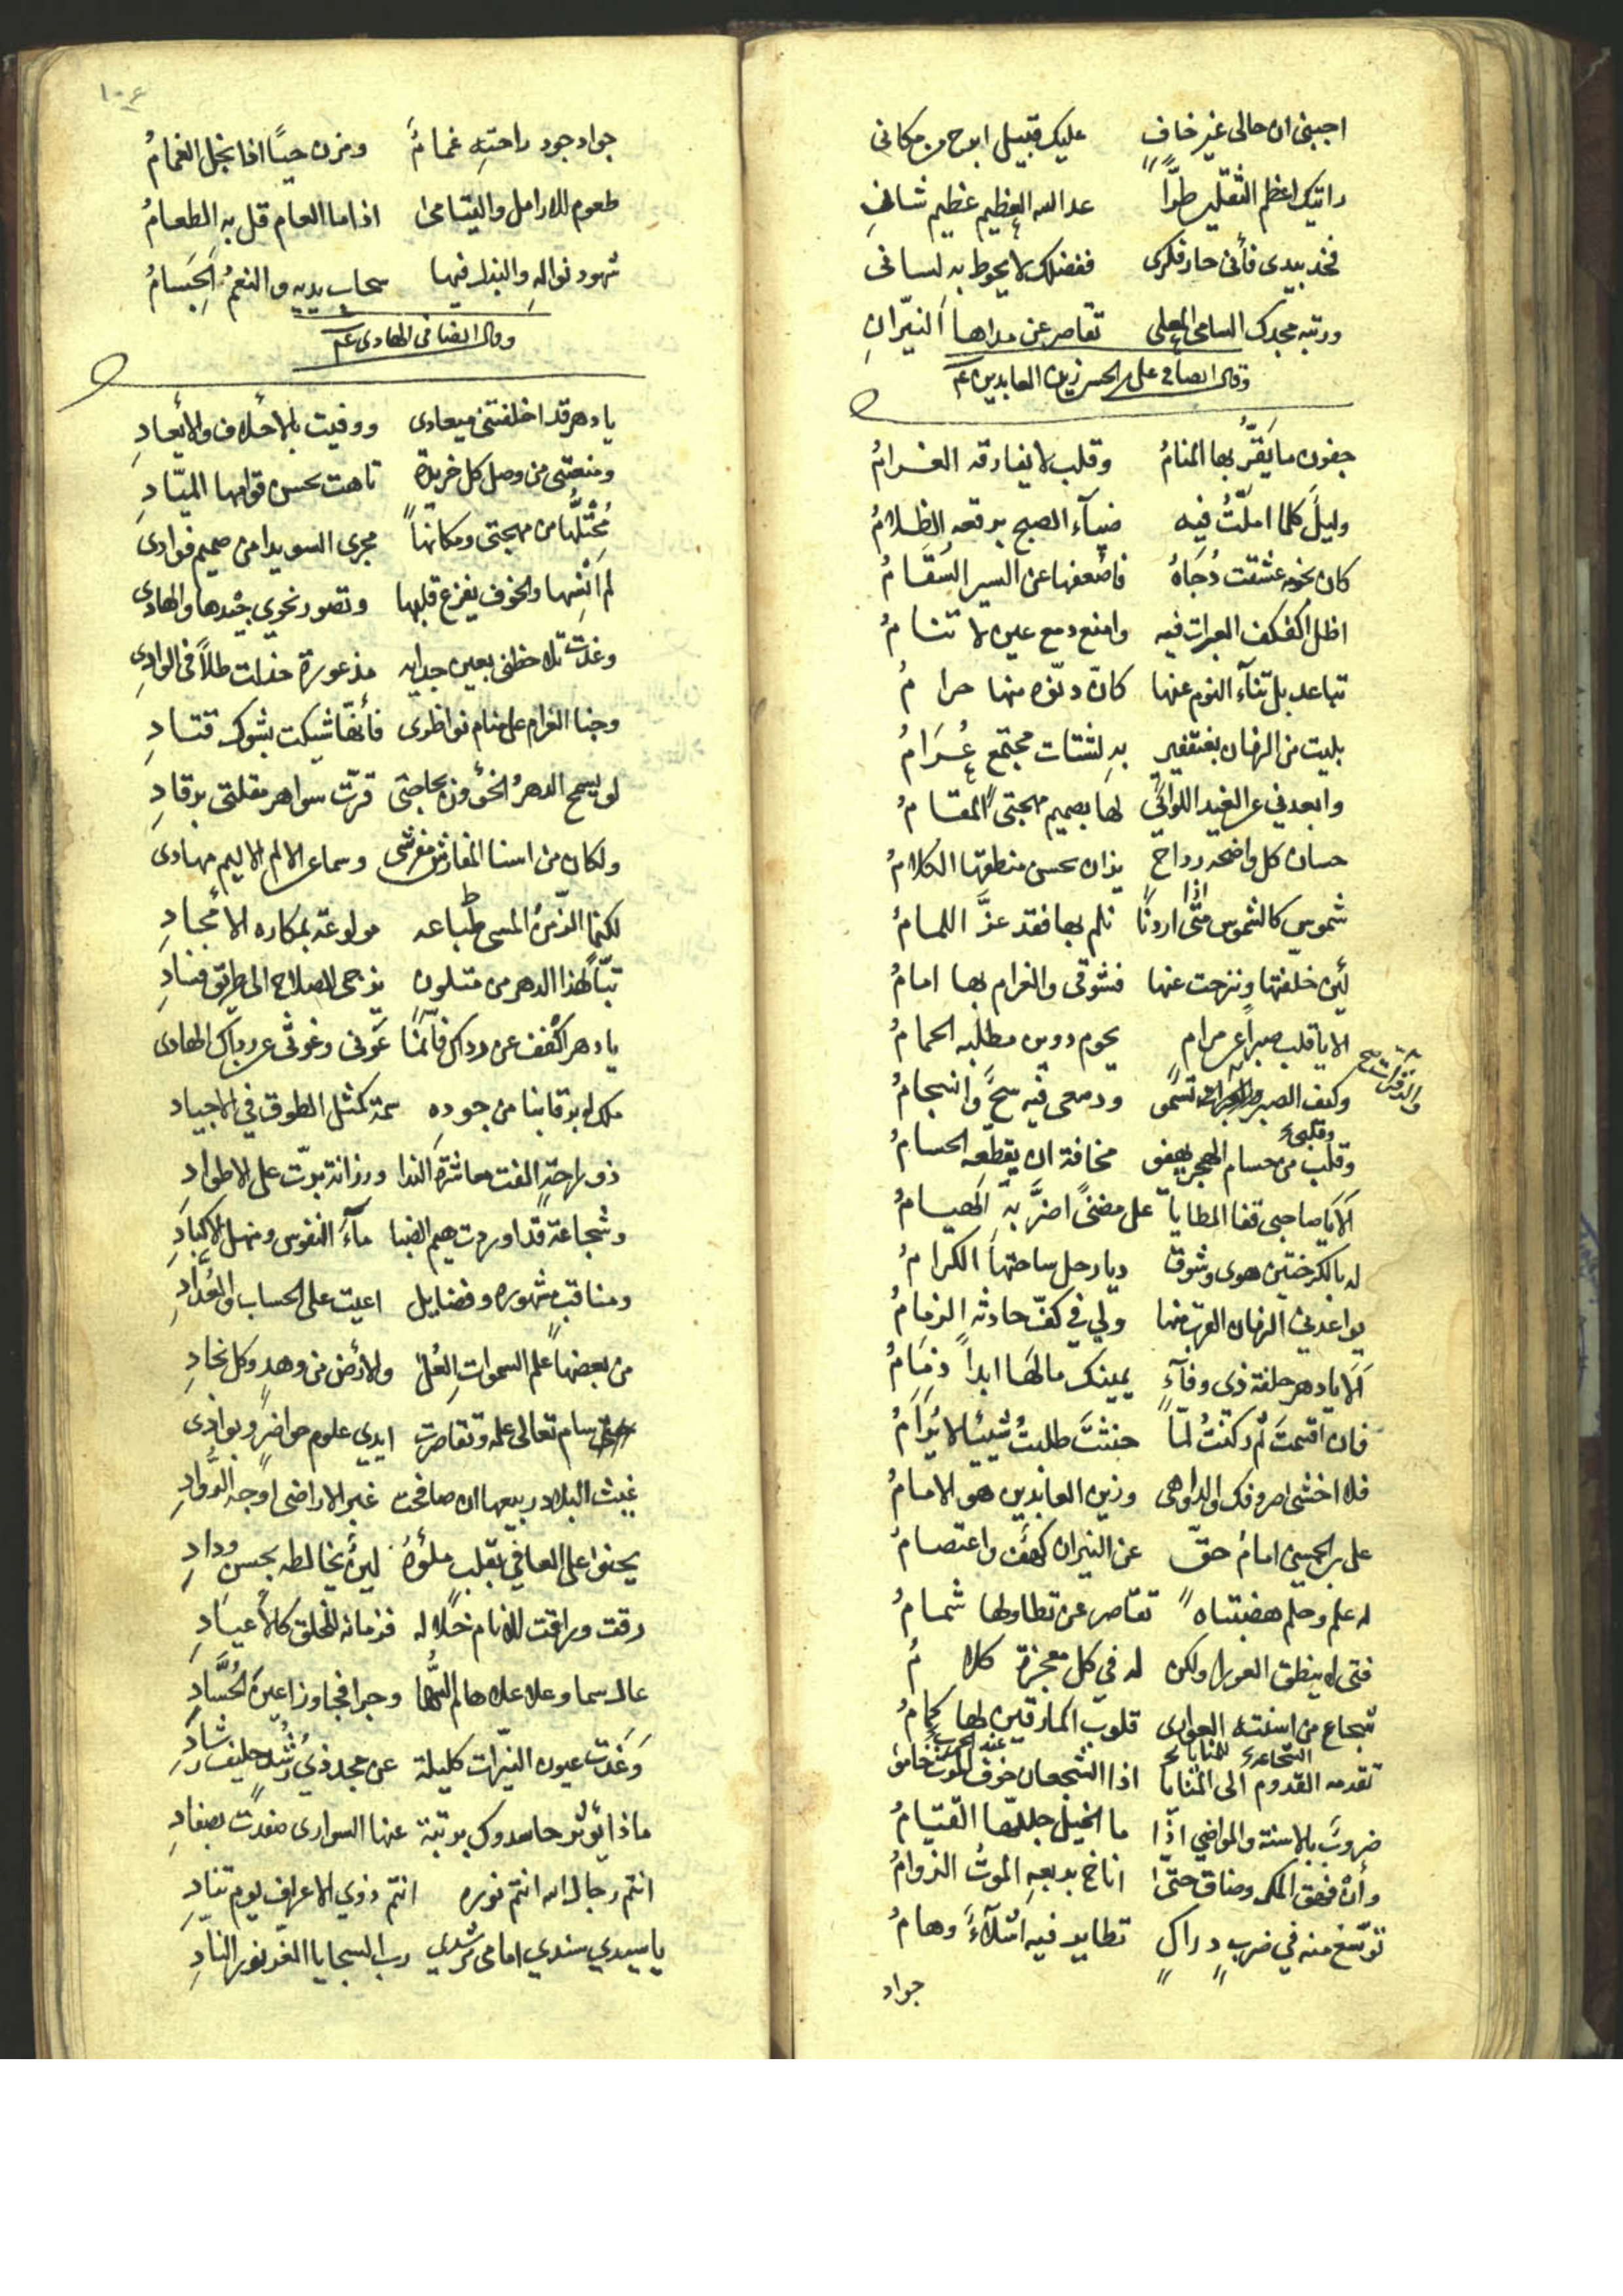 اجبنى ان حالى غير خاف عليك قبيل ابوح من مكانى
راتيك اعظم الثقلين طرّاً عد الله العظيم عظيم شانِ
فخذ بيدى فأنى حار فكرى ففضلك لا يحوط به لسانى
ورتبه مجدك السامى المعلى تقاصر عن مداها النيّرانِ
وقال ايضا فى على بن الحسين زين العابدين ع م
جفون ما يَقَرُّ بها المنامُ وقلب لا يفارقه الغرامُ
وليل كلما امّلتُ فيه ضيآء الصبح برقعه الظلامُ
كان نجومه عشقت دُجَاهُ فاضعفها عن السير السَقَامُ
اظل اكفكف العبرات فيه وامنع دمع عين لا تنامُ
تباعد بل تنآء النوم عنها كانّ دنّوه منها حرامُ
بليت من الزمان بعنقفير به لشتات مجتمع عُرَامُ
وابعدنى عن الغيد اللواتى لها بصميم مهجتى المقامُ
حسان كل واضحه رداح يزان بحسن منطقها الكلامُ
شموس كالشموس متى اذا اردنا نلم بها فقد عزَّ اللمامُ
لئن خلفتها ونزحت عنها فشوقى والغرام بها امامُ
الا يا قلب صبراً عن مرام يحوم دوين مطلبه الحمامُ
وكيف الصبر تسمى ودمعى فيه سحَّ وانسجامُ
وقلبى
وقلب من حسام الهجر يهفو مخافة ان يقطّعه الحسامُ
اَلا يا صاحبى قفا المطايا على مضنىً اضرَّ بهِ الهيامُ
له بالكرختين هوى وشوق ديار حل ساحتها الكرامُ
يواعدنى الزمان القرب منها ولي في كفّ حادثه الزمامُ
اَلا يا دهر حلفة ذى وفآءٍ يمينك مالها ابداً ذمَامُ
فان اقسمتَ لم ركنتُ لمّا حنثتَ طلبتُ شيئا لا يُرَامُ
فلا اخشى صروفك والدواهى وزين العابدين هو الامامُ
على بن الحسين امامُ حقّ عن النيران كهف واعتصامُ
له علم وحلم هضبتاه تقاصر عن تطاولها شمامُ
فتى لا ينطق العورا ولكن له في كل معجزة كلامُ
شجاع من اسنته العوارى قلوب المارقين لها كمامُ
تقدمه القدوم الى المنايا اذا الشجعان خوف الموت خاموا
ضروب بالاسنة والمواضى اذا ما الخيل جللها القتامُ
وأن فهق المكر وضاق حتى اناخ بدبعهِ الموتُ الزوامُ
توسّع منه في ضربٍ دراكٍ تطاير فيه اشلآءً وهامُ
جواد
١٠٤
جواد جود راحتهِ غمامٌ ومزن حيّاً اذا بخل الغمامُ
طعوم للارامل واليتامى اذا ما العام قل به الطعامُ
شهود نواله والبذل فيها سحاب يديه والنعمُ الجسامُ
وقال ايضا فى الهادى ع م
يا دهر قد اخلفتنى ميعادى ووفيت بالأخلاف والأيعادِ
ومنعتنى من وصل كل خريدة تاهت بحسن قوامها الميّادِ
مُحْتَلُّها من مهجتى ومكانها مجرى السويدا من صميم فوادى
لم اَنْسَها والخوف يفزع قلبها وتصور نحوي جيْدها والهادى
وغدت تلاحظنى بعين جداية مذعورة خذلت طلاً فى الوادى
وجنا الغرام على منام نواظرى فأنها شيكت بشوك قتادِ
لو يسمح الدهرُ الخؤون بحاجتى قرّت سواهر مقلتى برقادِ
ولكان من اسنا المفارش مفرشى وسماعى الالم الاليم مهادى
لكنما الزمنُ المسى طباعه مولوعة بمكاره الأمجادِ
تبّاً لهذا الدهر من متلون يزجى الصلاح الى طريق فسادِ
يا دهر اكفف عن رداك فأنما عونى وغوثى عن رداك الهادى
ملك له برقابنا من جوده سمة كمثل الطوق في الاجياد
ذو راحةٍ الفت معاشرة الندا ورزانة بوّت على الاطوادِ
وشجاعة قد اوردت هيم الضبا مآءَ النفوس ومنهل الاكبادِ
ومناقب مشهوره وفضايل اعيت على الحساب والعُدّادِ
من بعضها علم السموات العُلى والأرض من وهدٍ وكل نجادِ
سام تعالى علمه وتقاصرت ايدي علوم حواضرٍ وبوادى
غيث البلاد ربيعها ان صافحت غبر الاراضى اوجه الرُّوادِ
يحنو على العافى بقلب ملؤهُ لين يخالطه بحسن ودادِ
رقت وراقت للانام خلاله فزمانه للخلق كالأعيادِ
عال سما وعلا علاها لم السُّها وجرا فجاوز اعين الحُسَّادِ
وَغَدَت عيون النيّرات كليلة عن مجد ذي رُشْد حليف رشادِ
ماذا يؤثر حاسدوك برتبة عنها السوارى صفدت بصفادِ
انتم رجال الله انتم نوره انتم ذوي الاعراف يوم تنادِ
يا سيدي سندي امامى مرشدي رب السجايا الغر نور النادِ